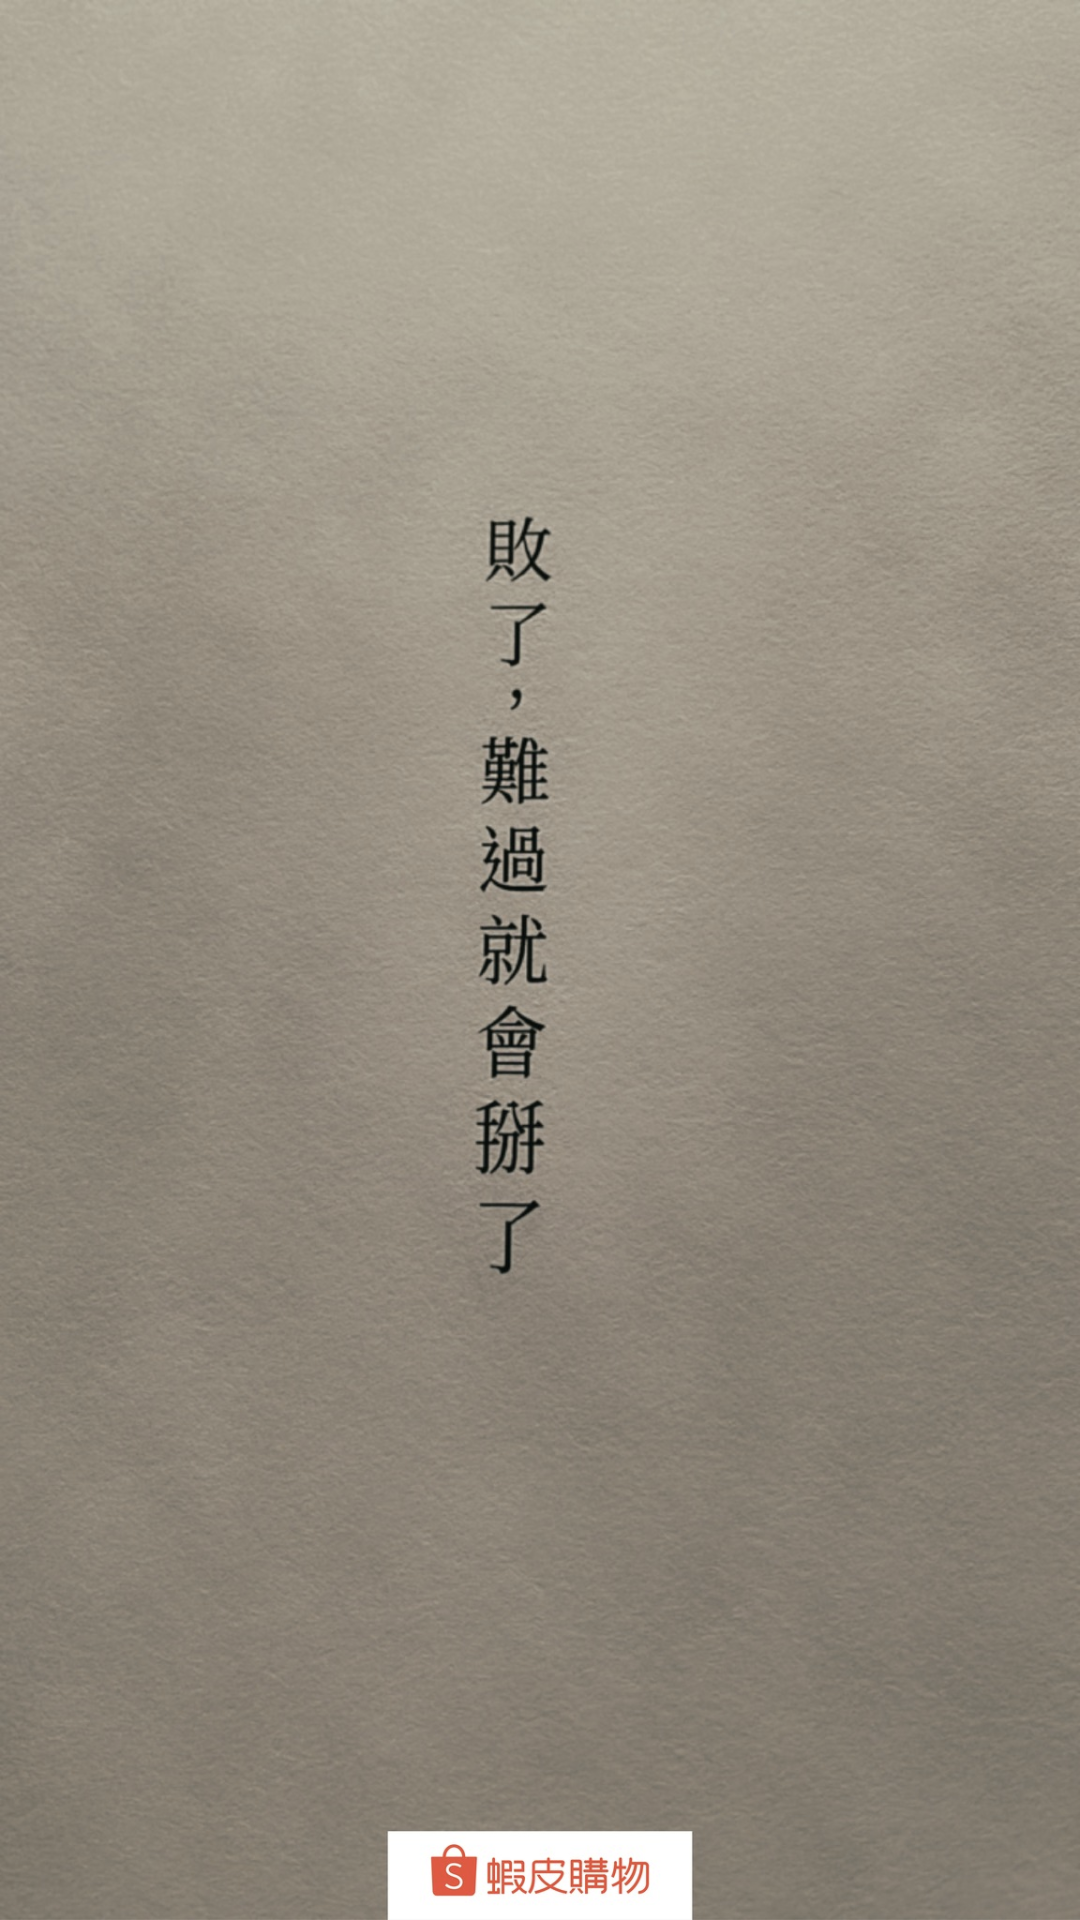 敗了，難過就會掰了
蝦皮購物